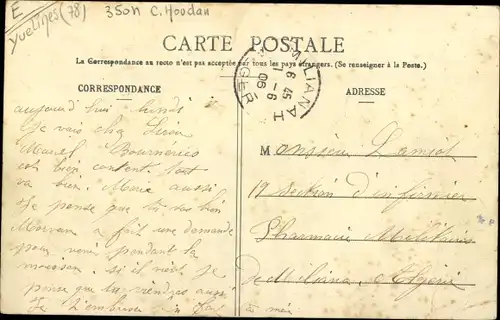 E
Yvelines (78)
35on C. Houdan
CARTE POSTALE
La Correspondance au recto n'est pas acceptée par tous les pays étrangers. (Se renseigner à la Poste.)
CORRESPONDANCE
ADRESSE
MILIANA
6 45
1 - 6
06
ALGER
aujourd'hui lundi
Je vais chez
Marcel
est bien content tout
va bien. Marie aussi
Je pense que tu vas bien
Morvan a fait une demande
pour venir pendant la
moisson. si il vient je
pense que tu viendras aussi
Je t'embrasse
Monsieur Lamiot
19 section d'infirmier
Pharmacie Militaire
de Miliana, Algérie